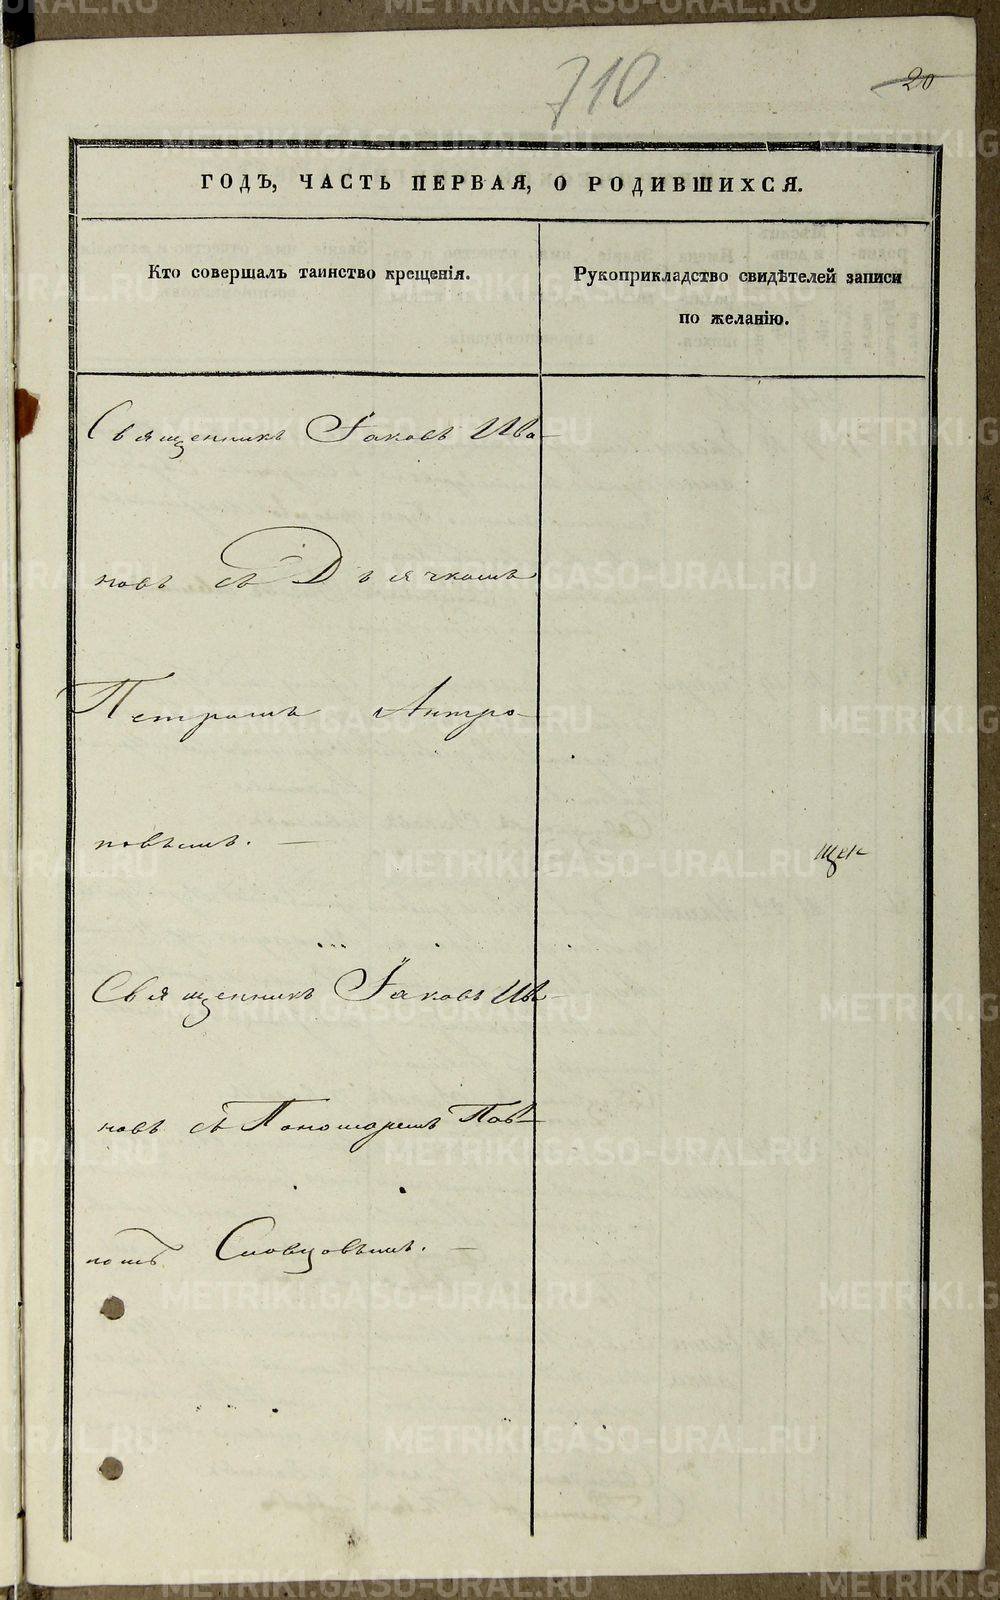 710
20
ГОДЪ, ЧАСТЬ ПЕРВАЯ, О РОДИВШИХСЯ.
Кто совершалъ таинство крещенія.
Рукоприкладство свидѣтелей записи
по желанію.
Священникъ Іаковъ Ива-
новъ съ Дьячкомъ
Петромъ Антро-
повымъ. —
Священникъ Іаковъ Ива-
новъ съ Пономаремъ Пав-
ломъ Словцовымъ. —
METRIKI.GASO-URAL.RU